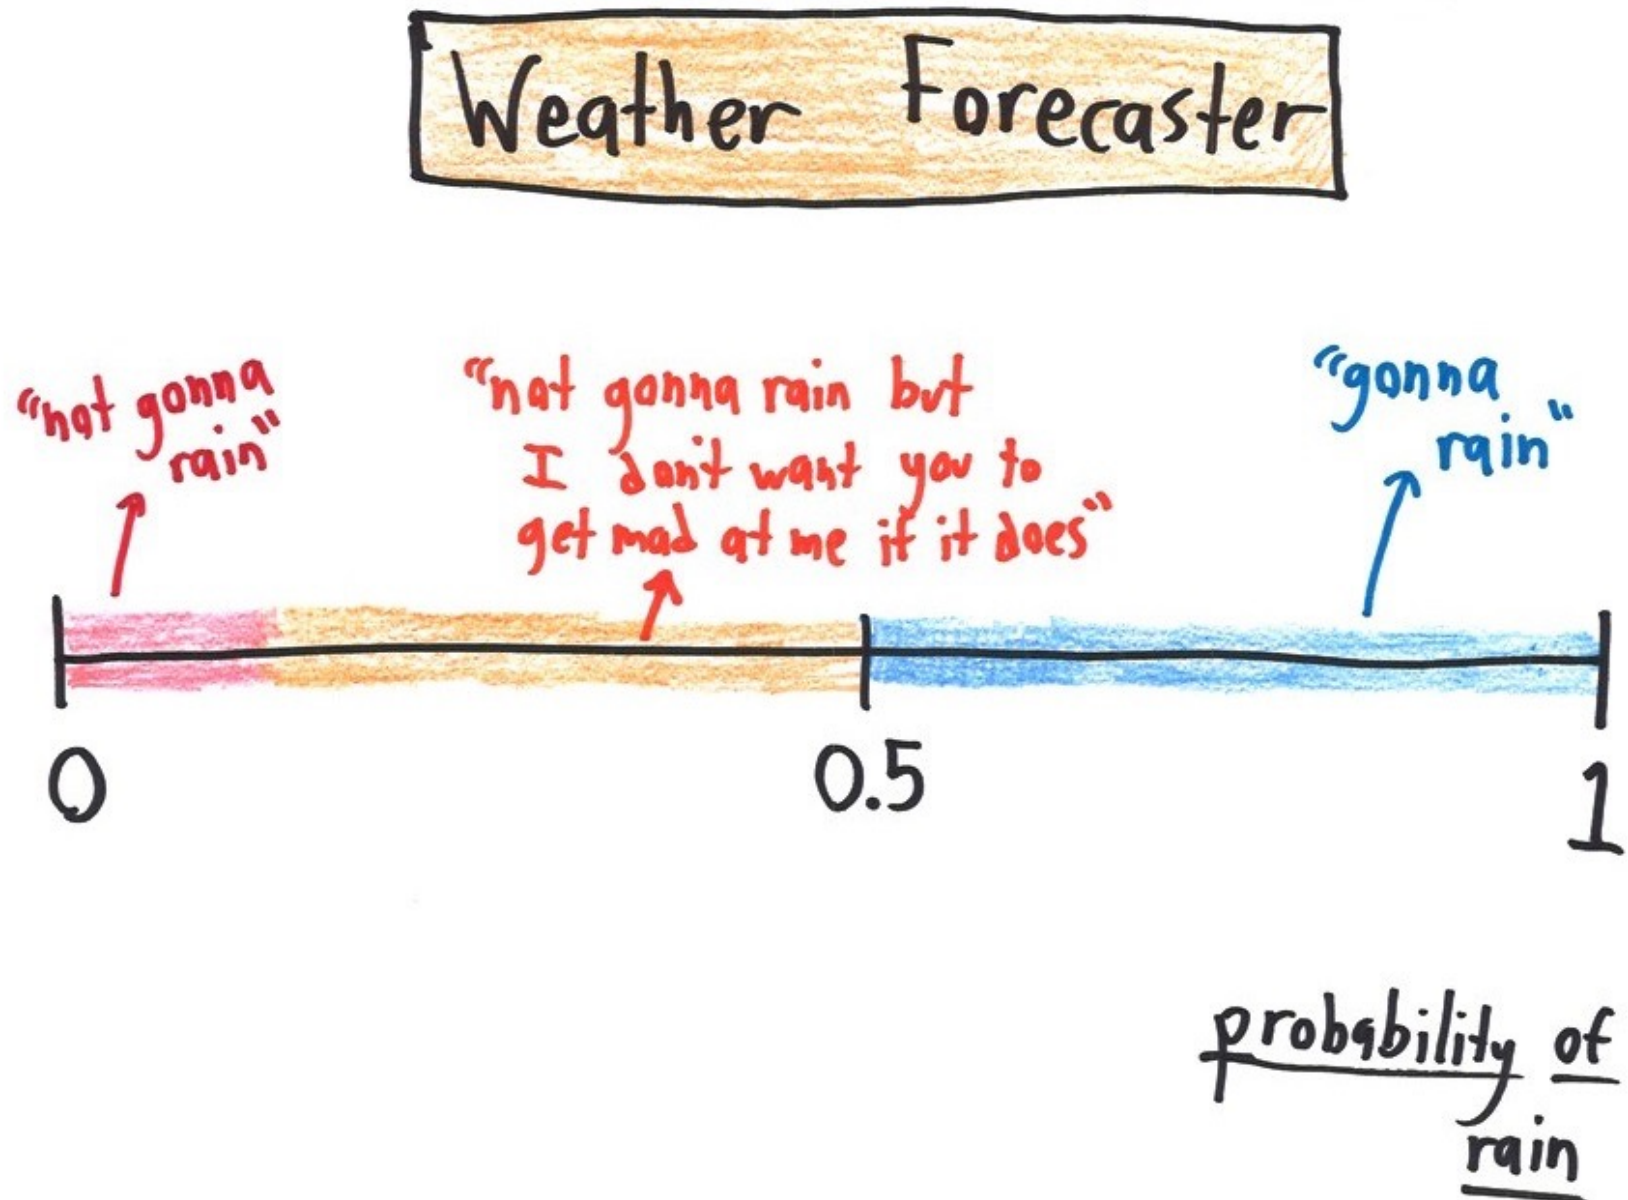 Weather Forecaster
"not gonna
rain"
"not gonna rain but
I don't want you to
get mad at me if it does"
"gonna
rain"
0
0.5
1
probability of
rain